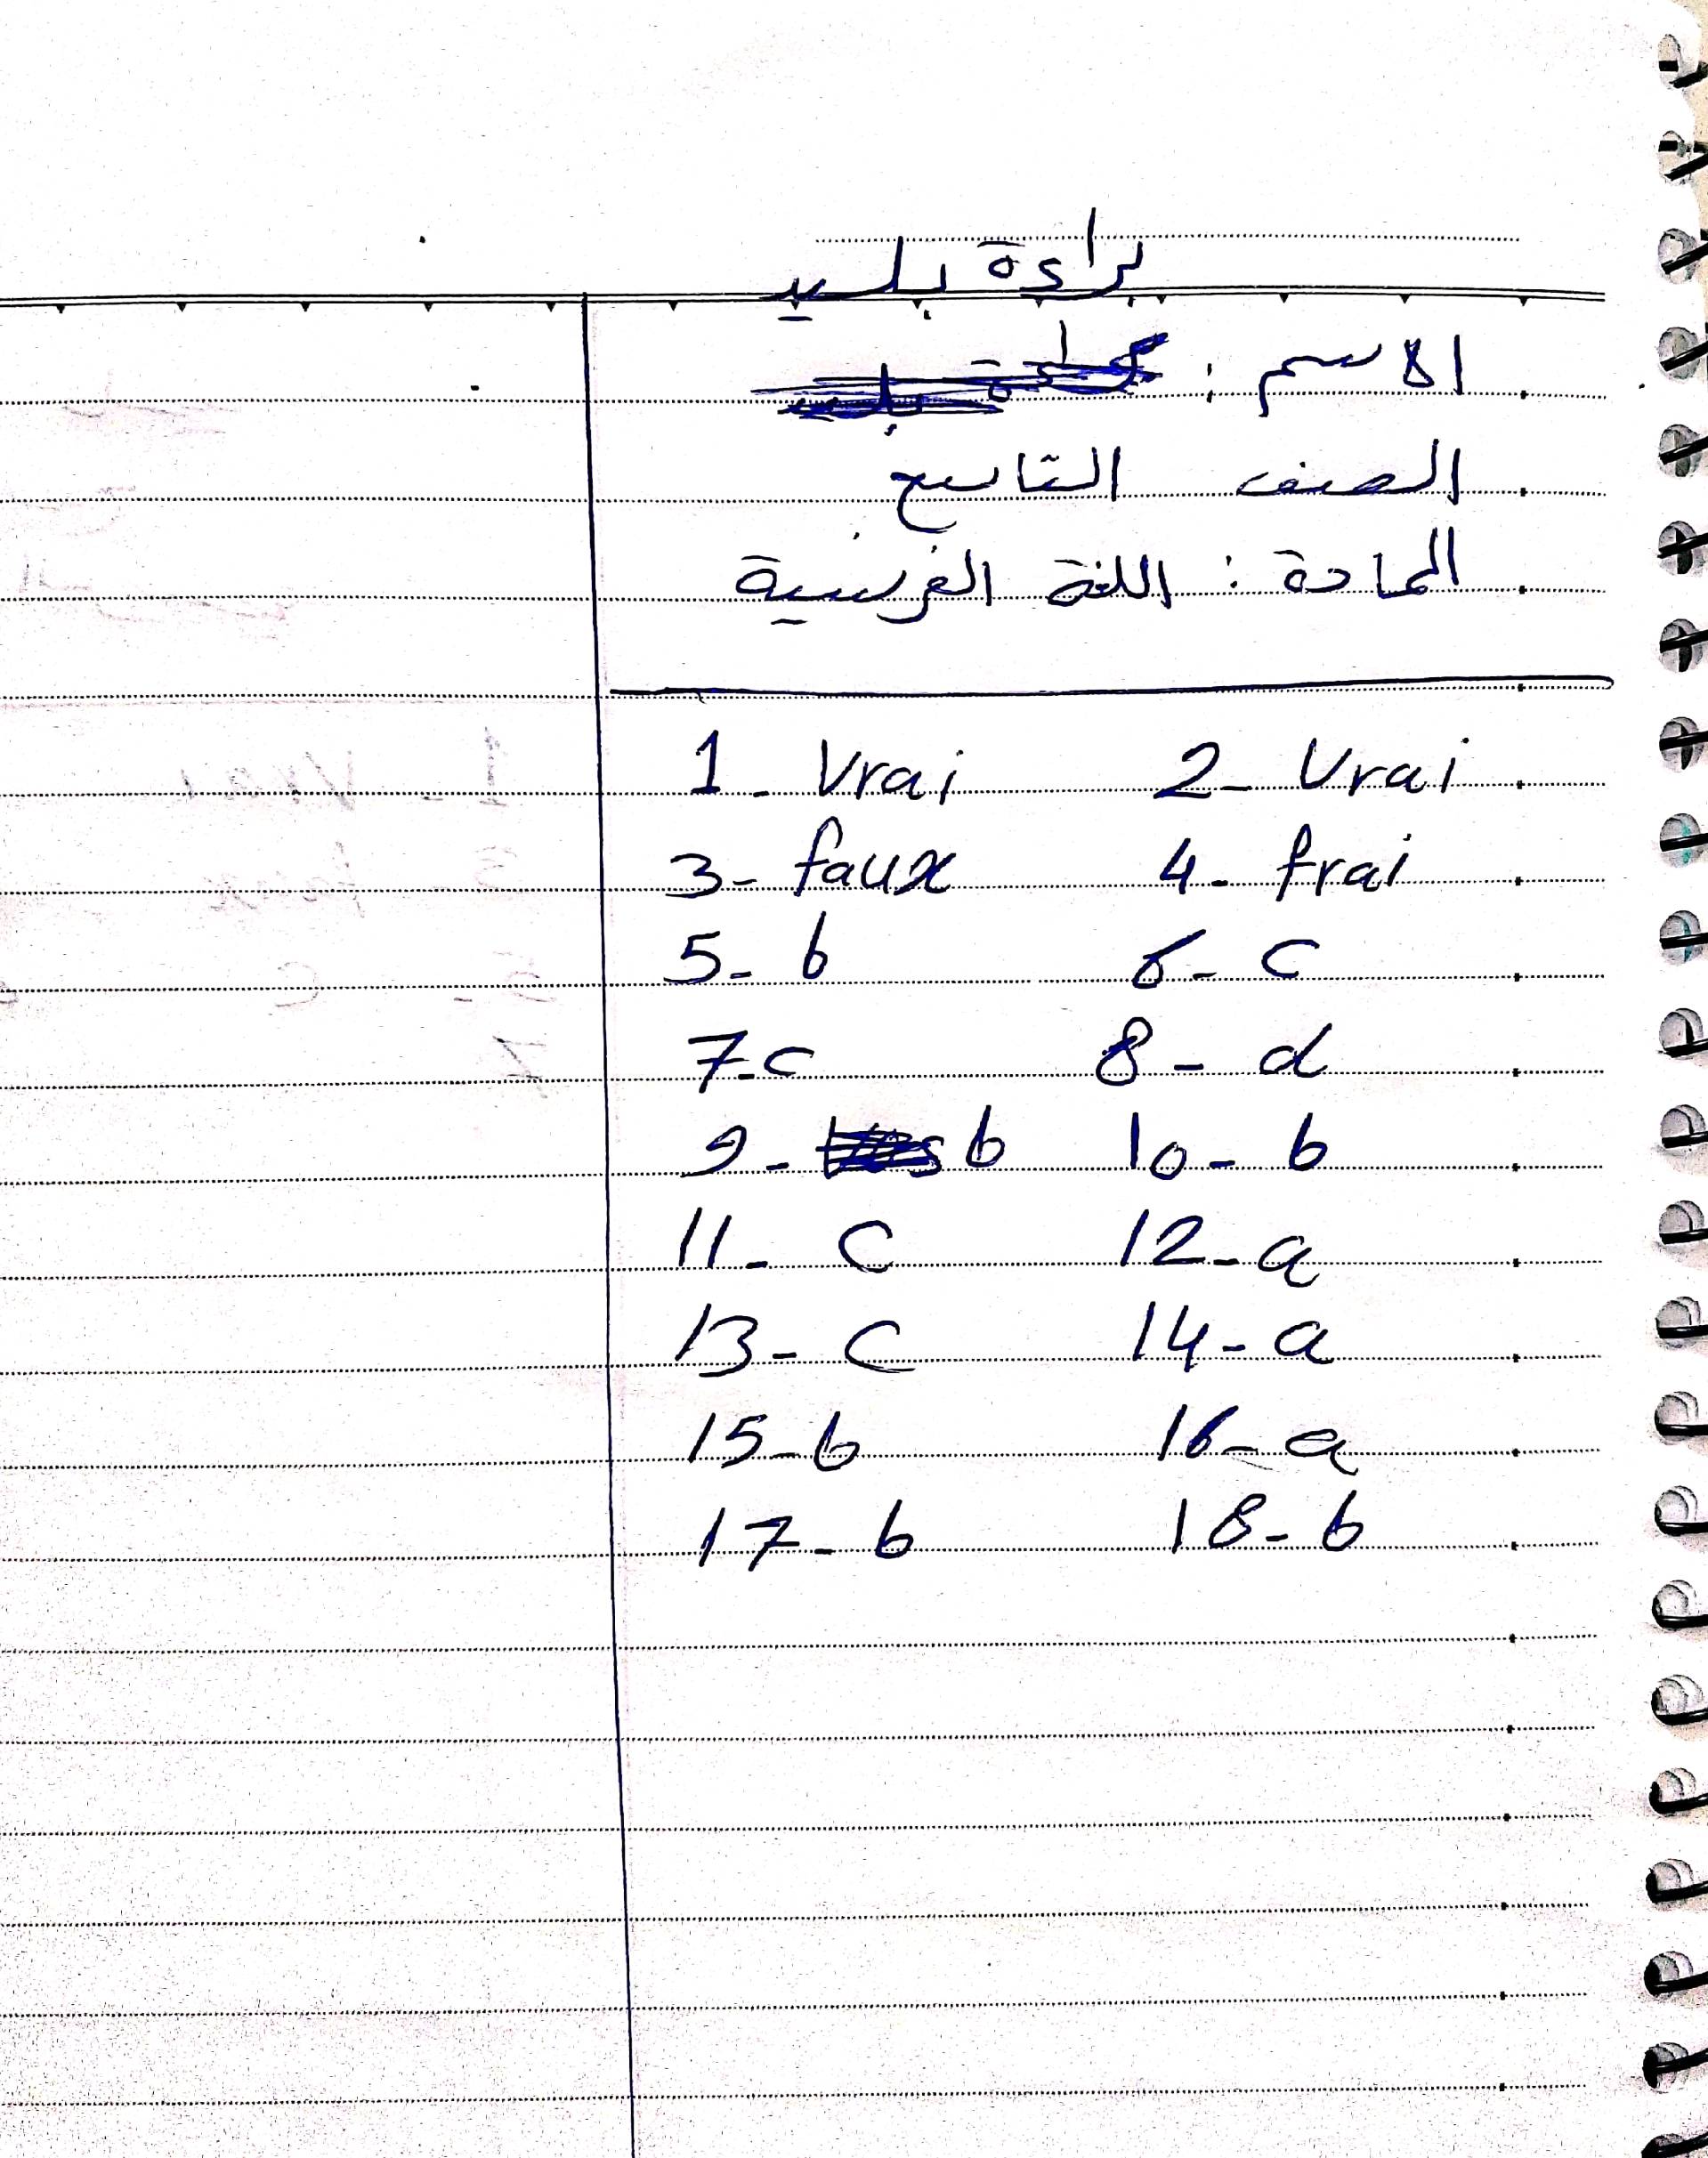 براءة بليد
الاسم :
الصف التاسع
المادة : اللغة الفرنسية
1 - Vrai 2 - Vrai
3 - faux 4 - frai
5 - b 6 - c
7 - c 8 - d
9 - b 10 - b
11 - c 12 - a
13 - c 14 - a
15 - b 16 - a
17 - b 18 - b